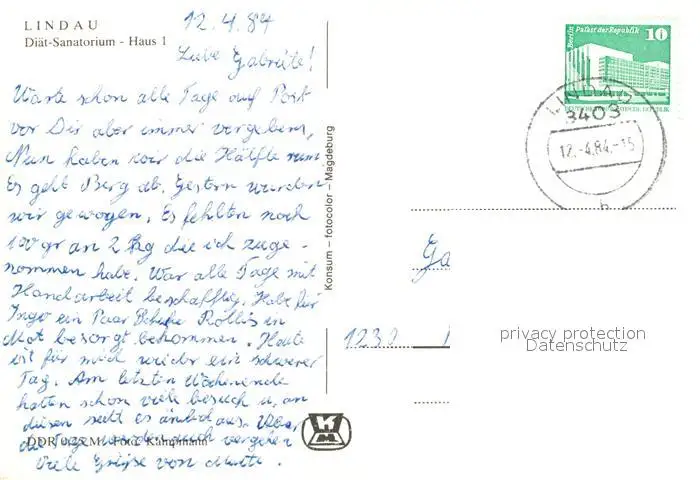 LINDAU
Diät-Sanatorium - Haus 1
12.4.84
Liebe Gabriele!
Warte schon alle Tage auf Post
vor Dir aber immer vergebens,
Nun haben wir die Hälfte rum
Es geht Berg ab. Gestern wurden
wir gewogen, Es fehlten noch
100 gr an 2 kg die ich zuge-
nommen habe. War alle Tage mit
Handarbeit beschäftig. Habe für
Ingo ein Paar Rollis in
Mot besorgt bekommen. Heute
ist für mich wieder ein schwerer
Tag. Am letzten Wochenende
hatten schon viele besuch u, an
diesen sieht es aus. Aber
die Tage auch vergehen
Viele Grüße von Mutti.
DDR 0,25 M Foto: Kampmann
Konsum – fotocolor – Magdeburg
KM
Berlin Palast der Republik 10
DEUTSCHE DEMOKRATISCHE REPUBLIK
LINDAU
3403
12.-4.84.-15
b
Ga
1230
privacy protection
Datenschutz